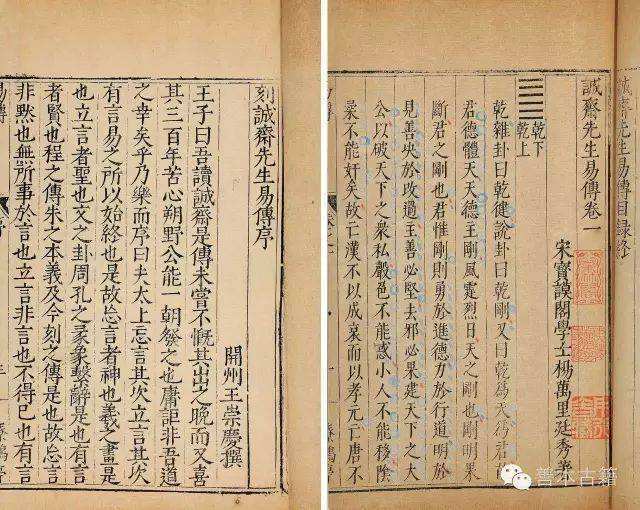 刻誠齋先生易傳序
開州王崇慶撰
王子曰吾讀誠齋是傳未嘗不慨其出之晚而又喜
其三百年苦心朔野公能一朝發之也庸詎非吾道
之幸矣乎乃樂而序曰夫太上忘言其次立言其次
有言易之所以始終也是故忘言者神也羲之畫是
也立言者聖也文之卦周孔之彖象繫辭是也有言
者賢也程之傳朱之本義及今刻之傳是也故忘言
非黙也無所事於言也立言非言也不得已也有言
誠齋先生易傳目録終
誠齋先生易傳卷一
宋寶謨閣學士楊萬里廷秀著
乾下
乾上
乾雜卦曰乾健說卦曰乾剛又曰乾為天為君故
君德體天天德主剛風霆烈日天之剛也剛明果
斷君之剛也君惟剛則勇於進德力於行道明於
見善決於改過主善必堅去邪必果建天下之大
公以破天下之衆私聲色不能惑小人不能移陰
柔不能奸矣故亡漢不以成哀而以孝元亡唐不
善本古籍